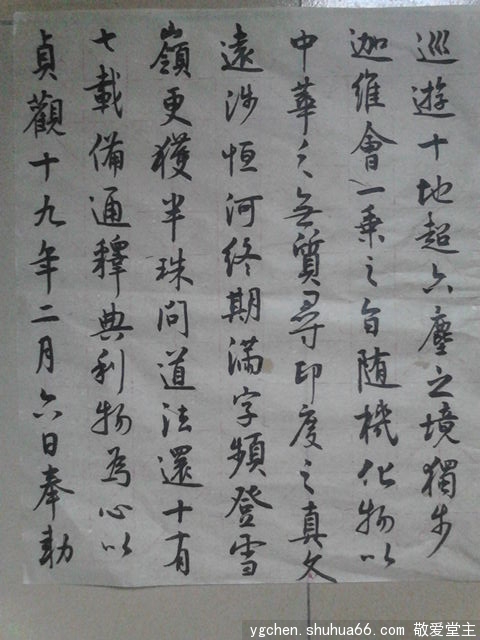 巡遊十地超六塵之境獨步
迦維會一乘之旨随機化物以
中華之無質尋印度之真文
遠涉恒河終期滿字頻登雪
嶺更獲半珠問道法還十有
七載備通釋典利物為心以
貞觀十九年二月六日奉勅
ygchen.shuhua66.com 敬爱堂主